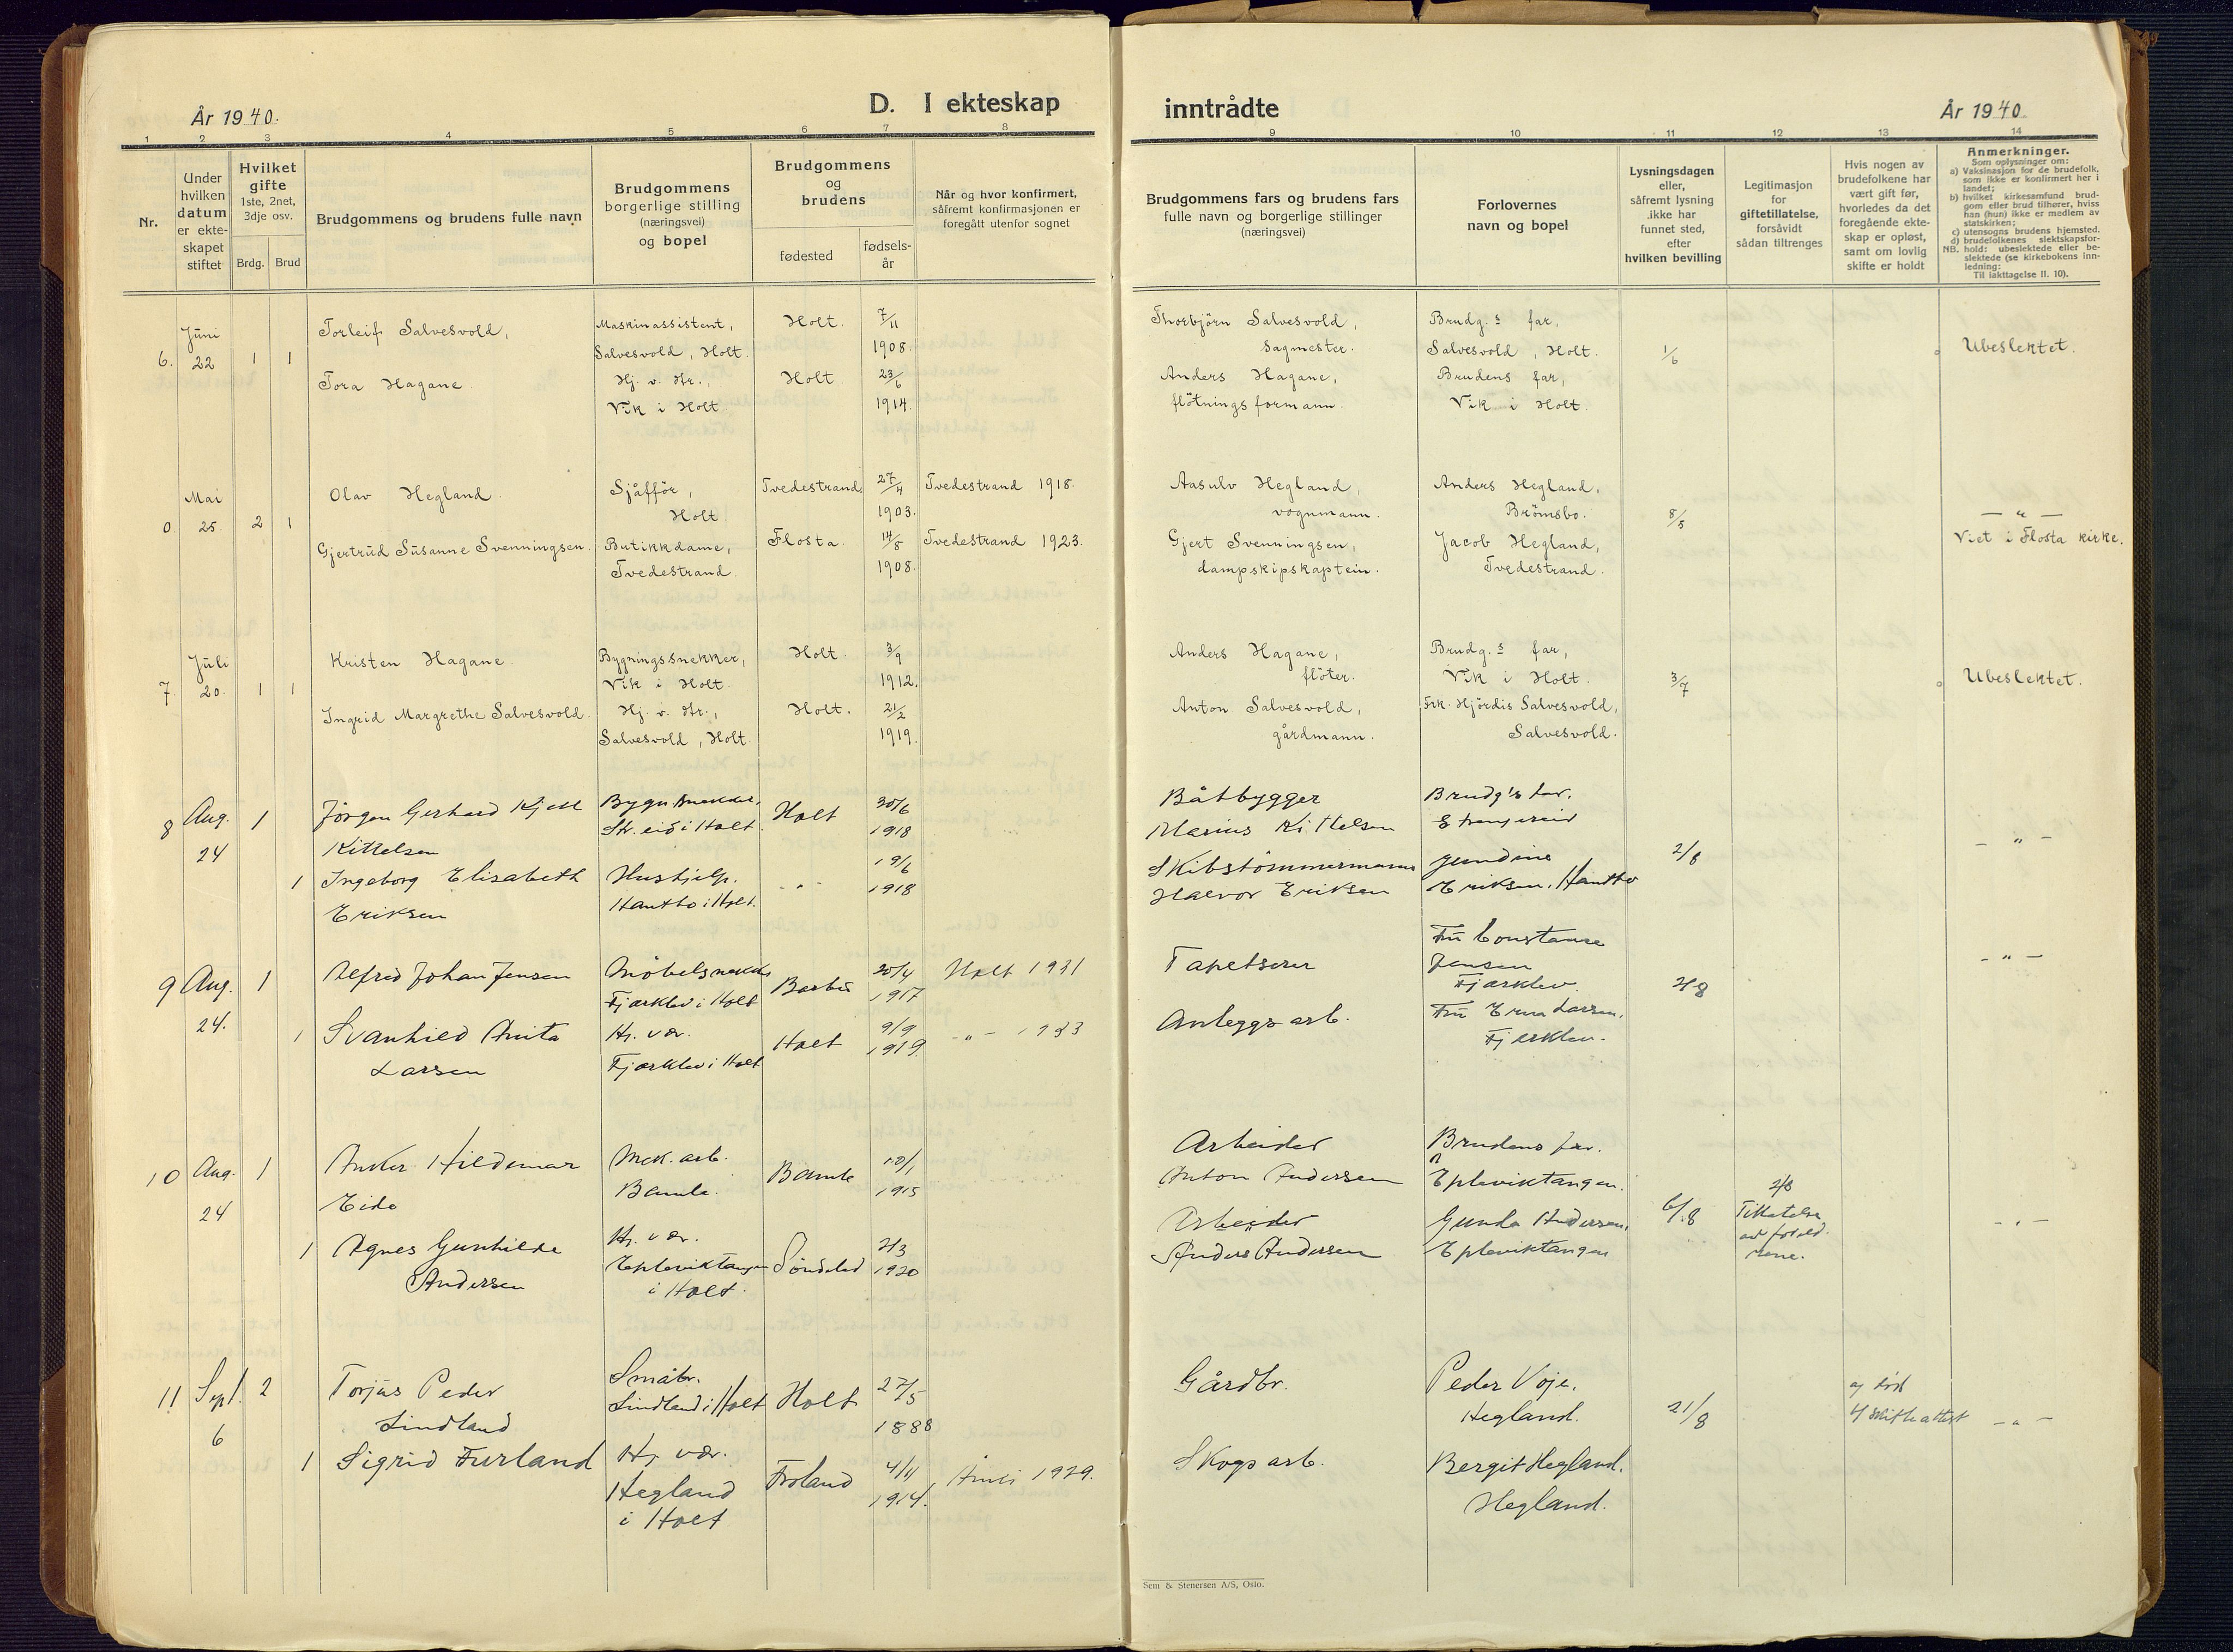 År 1940.
D. I ekteskap
inntrådte
År 1940
1 2 3 4 5 6 7 8 9 10 11 12 13 14
Nr.
Under hvilken datum er ekteskapet stiftet
Hvilket gifte
1ste, 2net, 3dje osv.
Brdg. Brud
Brudgommens og brudens fulle navn
Brudgommens borgerlige stilling (næringsvei) og bopel
Brudgommens og brudens
fødested
fødsels-år
Når og hvor konfirmert, såfremt konfirmasjonen er foregått utenfor sognet
Brudgommens fars og brudens fars fulle navn og borgerlige stillinger (næringsvei)
Forlovernes navn og bopel
Lysningsdagen eller, såfremt lysning ikke har funnet sted, efter hvilken bevilling
Legitimasjon for giftetillatelse, forsåvidt sådan tiltrenges
Hvis nogen av brudefolkene har vært gift før, hvorledes da det foregående ekteskap er opløst, samt om lovlig skifte er holdt
Anmerkninger.
Som oplysninger om:
a) Vaksinasjon for de brudefolk, som ikke er konfirmert her i landet;
b) hvilket kirkesamfund brudgom eller brud tilhører, hviss han (hun) ikke er medlem av statskirken;
c) utensogns brudens hjemsted.
d) brudefolkenes slektskapsforhold: ubeslektede eller beslektede (se kirkebokens innledning:
NB.
Til iakttagelse II. 10).
6. Juni 22 1 1
Torleif Salvesvold, Maskinassistent, Salvesvold, Holt. Holt. 7/11 1908.
Thorbjörn Salvesvold, Sagmester. Brudg.s far, Salvesvold, Holt. 1/6 Ubeslektet.
Tora Hagane Hj. v. Hr., Vik i Holt. Holt. 23/6 1914.
Anders Hagane, flötningsformann. Brudens far, Vik i Holt.
0. Mai 25. 2 1
Olav Hegland. Sjåfför, Holt. Tvedestrand 27/4 1903. Tvedestrand 1918.
Aasulv Hegland, vognmann. Anders Hegland, Brömsbo. 8/5 — " —
Gjertrud Susanne Svenningsen. Butikkdame, Tvedestrand. Flosta. 14/8 1908. Tvedestrand 1923.
Gjert Svenningsen, dampskipskaptein. Jacob Hegland, Tvedestrand. Viet i Flosta kirke.
7. Juli 20. 1 1
Kristen Hagane Bygningssnekker, Vik i Holt. Holt. 3/9 1912.
Anders Hagane, flöter. Brudg.s far, Vik i Holt. 3/7 Ubeslektet.
Ingrid Margrethe Salvesvold. Hj. v. Hr., Salvesvold, Holt. Holt. 21/2 1919.
Anton Salvesvold, gårdmann. Frk. Hjördis Salvesvold, Salvesvold.
8 Aug. 24 1
Jörgen Gerhard Kjell Kittelsen Holt 30/6 1918
Båtbygger Marius Kittelsen Brudg's far. 2/8 - " -
1 Ingeborg Elisabeth Eriksen Hushjelp. Hantho i Holt. - " - 19/6 1918
Skibstömmermann Halvor Eriksen Gundine Eriksen, Hantho
9 Aug. 24. 1
Alfred Johan Jensen Möbelsnekker Fjærklev i Holt Barbu 20/4 1917 Holt 1931
Tapetserer Fru Constanse Jensen Fjærklev. 2/8 - " -
1 Svanhild Anita Larsen Hj. vær. Fjærklev i Holt Holt 9/9 1919 - " - 1933
Anleggsarb. Fru Erna Larsen, Fjærklev.
10 Aug. 24 1
Anker Hildemar Eide Mek. arb. Bamle. Bamble 10/1 1915
Arbeider Anton Andersen Brudens far. Epleviktangen. 6/8 2/8 Tillatelse av foreld-rene. - " -
1 Agnes Gunhilde Andersen Hj. vær. Epleviktangen i Holt. Söndeled 21/3 1920
Arbeider Anders Andersen Gunda Andersen, Epleviktangen
11 Sept. 6 2
Torjus Peder Lindland Småbr. Lindland i Holt Holt 27/5 1888
Gårdbr. Peder Voje. Hegland. 21/8 a) död b) skifteattest - " -
1 Sigrid Furland Hj. vær. Hegland i Holt Froland 4/11 1914. Åmli 1929.
Skogsarb. Bergit Hegland. Hegland.
Sem & Stenersen A/S, Oslo.